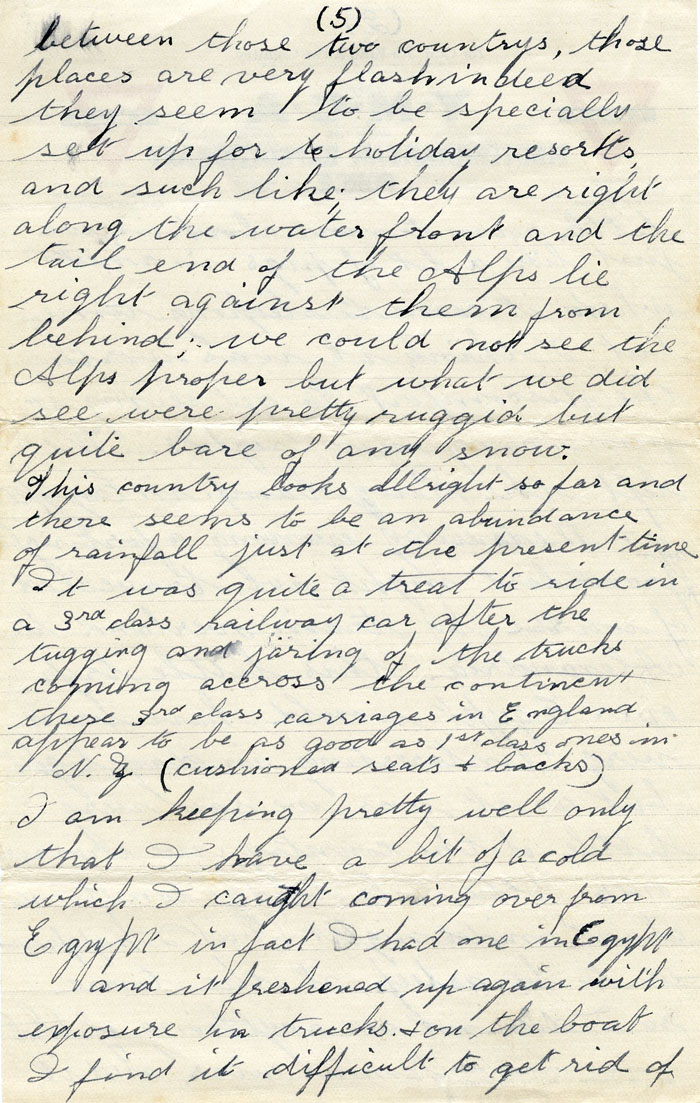 (5)
between those two countrys, those
places are very flash indeed
they seem to be specially
set up for holiday resorts
and such like; they are right
along the water front and the
tail end of the Alps lie
right against them from
behind; we could not see the
Alps proper but what we did
see were pretty ruggid but
quite bare of any snow.
This country looks allright so far and
there seems to be an abundance
of rainfall just at the present time
It was quite a treat to ride in
a 3rd class railway car after the
tugging and jaring of the trucks
coming accross the continent
these 3rd class carriages in England
appear to be as good as 1st class ones in
N. Z (cushioned seats + backs)
I am keeping pretty well only
that I have a bit of a cold
which I caught coming over from
Egypt in fact I had one in Egypt
and it freshened up again with
exposure in trucks. + on the boat
I find it difficult to get rid of